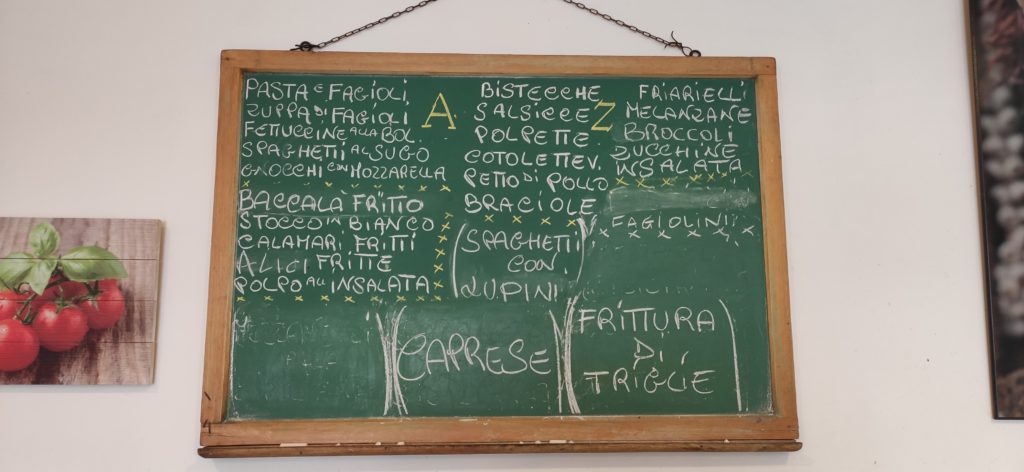 PASTA E FAGIOLI
ZUPPA DI FAGIOLI
FETTUCCINE ALLA BOL.
SPAGHETTI AL SUGO
GNOCCHI CON MOZZARELLA
BACCALÀ FRITTO
STOCCO IN BIANCO
CALAMARI FRITTI
ALICI FRITTE
POLPO ALL INSALATA
A
BISTECCHE
SALSICCE
POLPETTE
COTOLETTE V.
PETTO DI POLLO
BRACIOLE
(SPAGHETTI
CON
LUPINI
Z
FRIARIELLI
MELANZANE
BROCCOLI
ZUCCHINE
INSALATA
FAGIOLINI
(CAPRESE
(FRITTURA
DI
TRIGLIE)